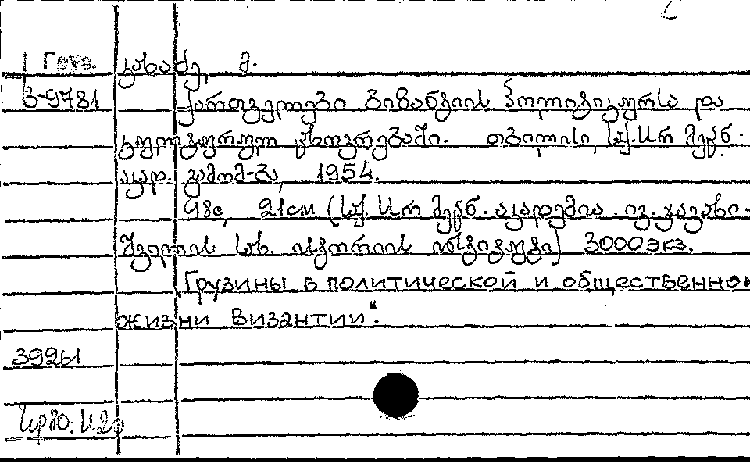 Груз. კახაძე, მ.
3-9781 ქართველები ბიზანტიის პოლიტიკურსა და
კულტურულ ცხოვრებაში. თბილისი, საქ. სსრ მეცნ.
აკად. გამომ-ბა, 1954.
98с, 21см (საქ. სსრ მეცნ. აკადემია. ივ. ჯავახი-
შვილის სახ. ისტორიის ინსტიტუტი) 3000экз.
„Грузины в политической и общественной
жизни Византии“.
39261